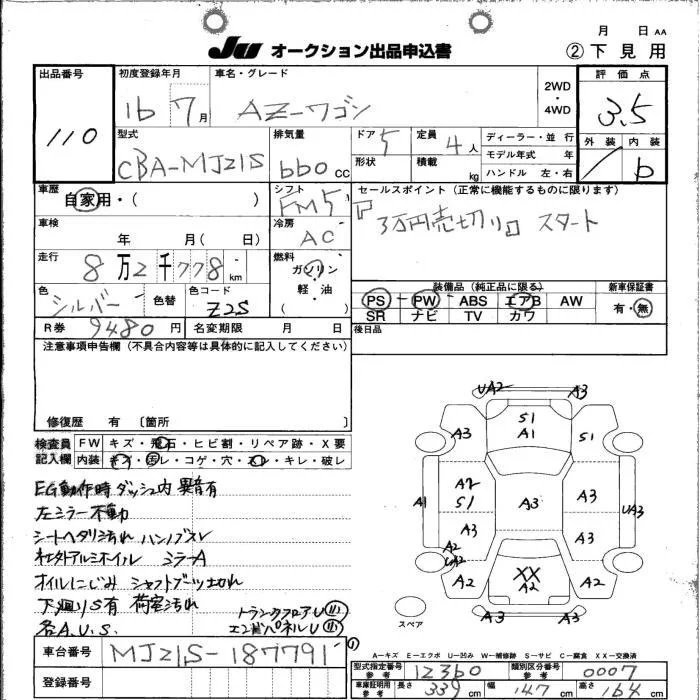 月 日 AA
JU オークション出品申込書 ②下見用
出品番号 110
初度登録年月 16 7月
車名・グレード AZ-ワゴン
2WD・4WD
評価点 3.5
外装 内装 b
型式 CBA-MJ21S
排気量 660 CC
ドア 5
形状
定員 4人
積載 kg
ディーラー・並行
モデル年式 年
ハンドル 左・右
車歴 自家用・( )
シフト FM5
セールスポイント(正常に機能するものに限ります)
『3万円売切り』スタート
車検 年 月( 日)
冷房 AC
走行 8万2千778km
燃料 ガソリン 軽・油 ( )
色 シルバー
色替
色コード Z2S
装備品(純正品に限る)
PS PW ABS エアB AW
SR ナビ TV カワ
新車保証書 有・無
R券 9480円
名変期限 月 日
後日品
注意事項申告欄(不具合内容等は具体的に記入してください)
修復歴 有 〔箇所 〕
検査員記入欄
FW キズ・飛石・ヒビ割・リペア跡・X要
内装 キズ・汚レ・コゲ・穴・スレ・キレ・破レ
EG動作時ダッシュ内異音有
左ミラー不動
シートヘタリ汚れ ハンドブスレ
社外アルミホイル ミラーA
オイルにじみ シャフトブーツ切れ
下廻りS有 荷室汚れ
各A.U.S.
トランクフロアU
エンドパネルU
UA2 A3
A3 S1 A1 S1
A1 A2 S1 A3 A3 UA3
A3 A3
A2 UA2
A2 XX A2 A2
A3 A3
スペア
A-キズ E-エクボ U-凹み W-補修跡 S-サビ C-腐食 XX-交換済
車台番号 MJ21S-187791
登録番号
型式指定番号 参考 12360
類別区分番号 参考 0007
車庫証明用 参考 長さ 339cm 幅 147cm 高さ 164cm